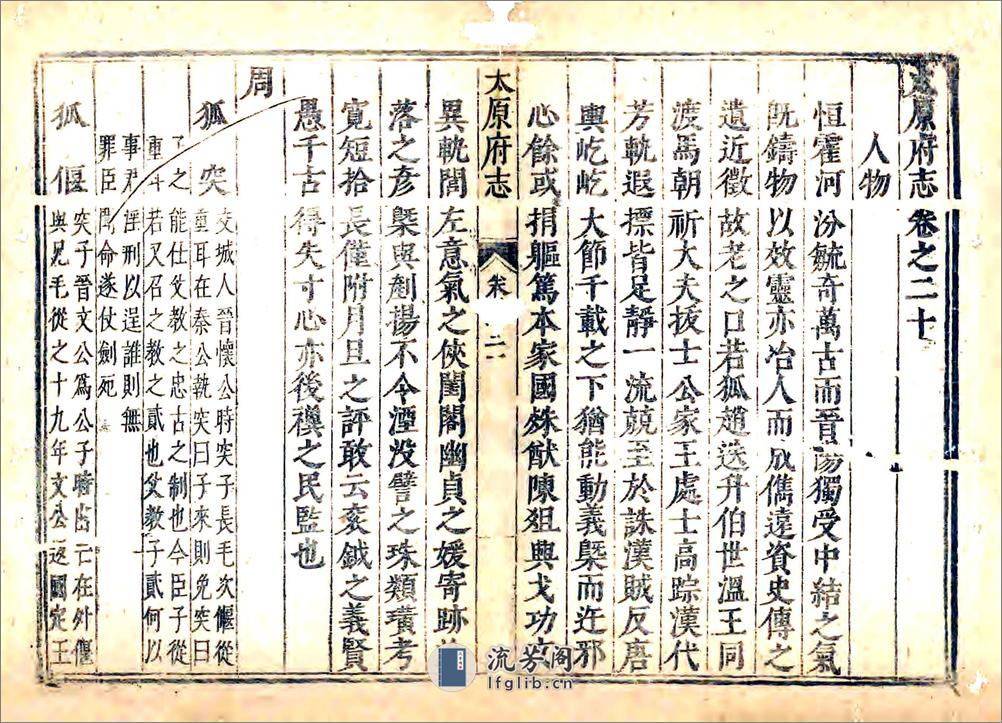 太原府志卷之二十
人物
恒霍河汾毓奇萬古而晉陽獨受中結之氣
既鑄物以效靈亦冶人而成儁遠資史傳之
遺近徵故老之口若狐趙迭升伯世溫王同
渡馬朝祈大夫抜士公家王處士高踪漢代
芳軌遐摽皆足靜一流競至於誅漢賊反唐
輿屹屹大節千載之下猶能動義槩而迕邪
心餘或捐軀篤本家國殊猷陳俎輿戈功
太原府志
異軌閭左意氣之俠閨閣幽貞之媛寄跡
落之彦槩與剷揚不令湮没譬之珠類璜考
寛短拾長僅附月旦之評敢云衮鉞之義賢
愚千古得失寸心亦後禩之民監也
周
狐突
交城人晉懷公時突子長毛次偃從
重耳在秦公執突曰子來則免突曰
子之能仕父教之忠古之制也今臣子從
重耳若又召之教之貳也父教子貳何以
事君淫刑以逞誰則無
罪臣聞命遂仗劍死
狐偃
突子晉文公爲公子時出亡在外偃
與兄毛從之十九年文公返國定王
流芳閣
lfglib.cn